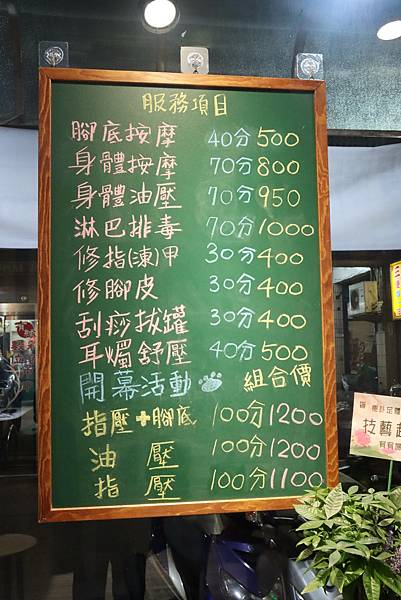 服務項目
腳底按摩 40分500
身體按摩 70分800
身體油壓 70分950
淋巴排毒 70分1000
修指(凍)甲 30分400
修腳皮 30分400
刮痧拔罐 30分400
耳燭舒壓 40分500
開幕活動 組合價
指壓+腳底 100分1200
油 壓 100分1200
指 壓 100分1100
技藝超